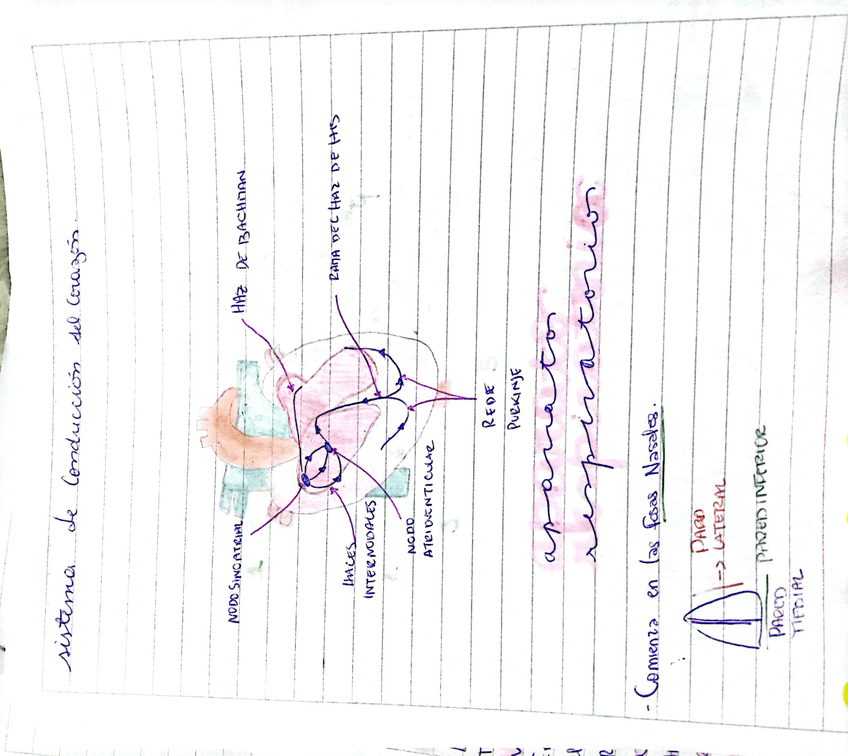 sistema de Conducción del Corazón.
HAZ DE BACHMAN
RAMA DEL HAZ DE HIS
NODO SINOATRIAL
HACES
INTERNODALES
NODO
ATRIOVENTICULAR
REDE
PURKINJE
aparato
respiratorio
- Comienza en las fosas Nasales.
PARED
-> LATERAL
PARED INFERIOR
PARED
MEDIAL